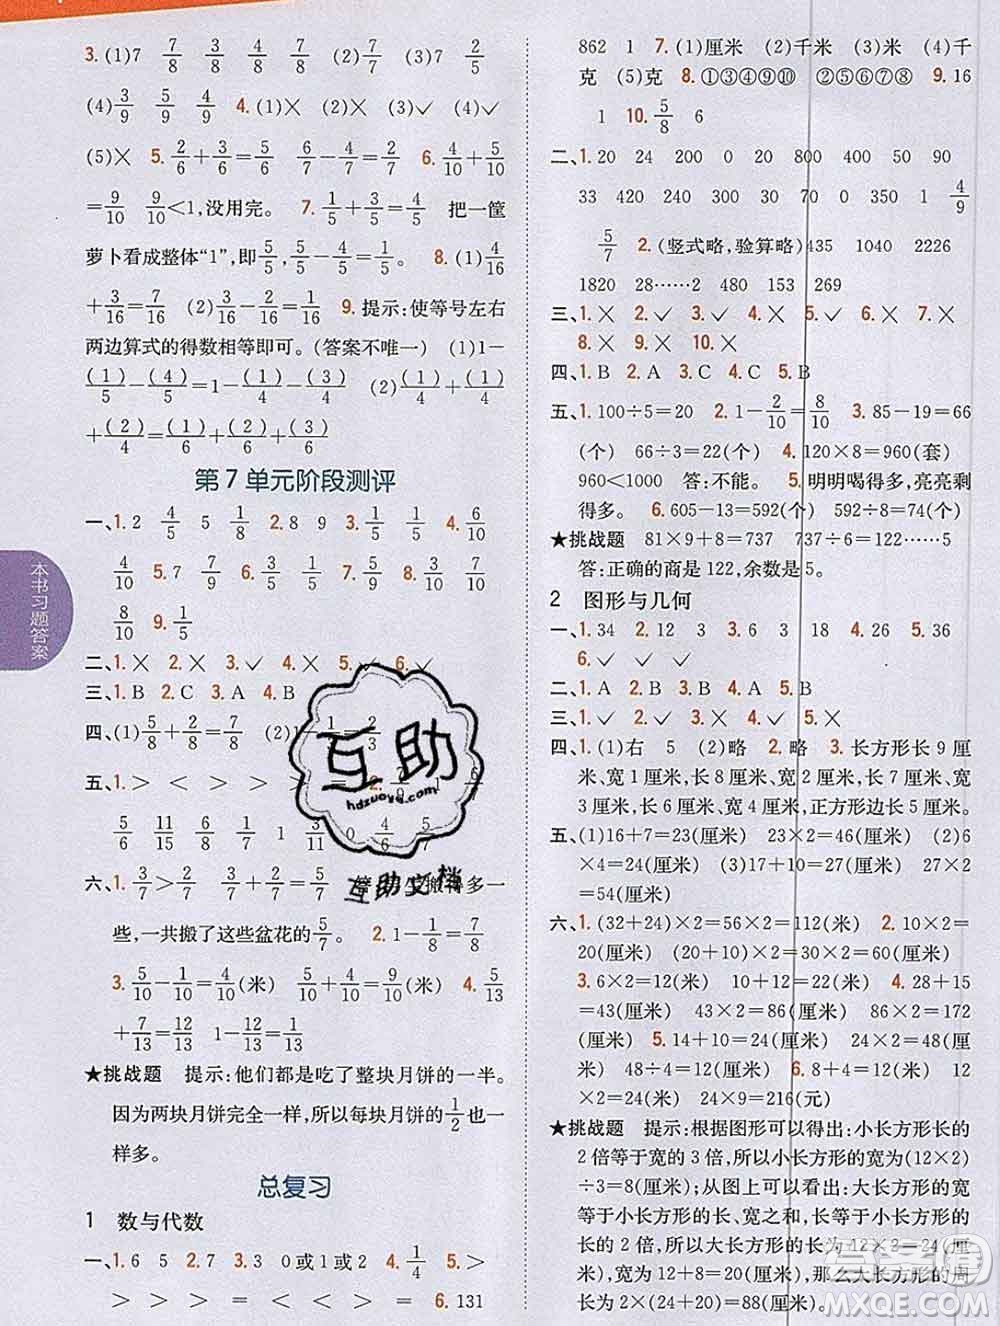 3.(1)7 7/8 7/8 (2)4/7 4/7 4/7 (3)2 2/5
(4)3/9 5/9 4/9 4.(1)× (2)× (3)✓ (4)✓
(5)× 5.2/6+3/6=5/6 6/7-4/7=2/7 6.4/10+5/10
=9/10 9/10<1,没用完。 7.1/5+3/5=4/5 把一筐
萝卜看成整体“1”,即5/5,5/5-4/5=1/5。 8.(1)4/16
+3/16=7/16 (2)9/16-7/16=2/16 9.提示:使等号左右
两边算式的得数相等即可。(答案不唯一) (1)1-
(1)/5-(4)/5=1-(1)/4-(3)/4 (2)(1)/4+(1)/4
+(2)/4=(1)/6+(2)/6+(3)/6
第7单元阶段测评
一、1.2 4/5 5 1/8 2.8 9 3.1/5 1/5 4.6/10
4/10 5.7 7/9 6.4/8 7/8 7.6/9 4/9 8.2/10
8/10 9.1/5
二、1.× 2.× 3.× 4.× 5.✓ 6.✓
三、1.B 2.C 3.A 4.B
四、(1)5/8+2/8=7/8 (2)1-1/3=2/3
五、1.> > < > < > 2.
5/6 11/15 6/8 3/11 0 4/6 5/7
六、1.3/7>2/7 3/7+2/7=5/7
些,一共搬了这些盆花的5/7。 2.1-1/8=7/8
3.5/10-1/10=4/10(米) 5/10+4/10=9/10(米) 4.5/13
+7/13=12/13 1-12/13=1/13
★挑战题 提示:他们都是吃了整块月饼的一半。
因为两块月饼完全一样,所以每块月饼的1/2也一样多。
总复习
1 数与代数
一、1.6 5 2.7 3.3 0或1或2 4.4/4 5.> >
> > > = < < > = 6.131
862 1 7.(1)厘米 (2)千米 (3)米 (4)千
克 (5)克 8.①③④⑨⑩ ②⑤⑥⑦⑧ 9.16
1 10.5/8 6
二、1.20 24 200 0 20 800 400 50 90
33 420 240 930 700 850 350 1 4/9
5/7 2.(竖式略,验算略)435 1040 2226
1820 28……2 480 153 269
三、1.× 2.✓ 3.✓ 4.✓ 5.✓ 6.× 7.×
8.× 9.✓ 10.×
四、1.B 2.A 3.C 4.B 5.B
五、1.100÷5=20 2.1-2/10=8/10 3.85-19=66
(个) 66÷3=22(个) 4.120×8=960(套)
960<1000 答:不能。 5.明明喝得多,亮亮剩
得多。 6.605-13=592(个) 592÷8=74(个)
★挑战题 81×9+8=737 737÷6=122……5
答:正确的商是122,余数是5。
2 图形与几何
一、1.34 2.12 3 3.6 3 18 4.26 5.36
6.✓ × ✓
二、1.A 2.B 3.B 4.B
三、1.✓ 2.✓ 3.× 4.✓ 5.✓ 6.×
四、1.(1)右 5 (2)略 2.略 3.长方形长9厘
米、宽1厘米,长8厘米、宽2厘米,长7厘米、宽
3厘米,长6厘米、宽4厘米,正方形边长5厘米。
五、(1)16+7=23(厘米) 23×2=46(厘米) (2)6
×4=24(厘米) (3)20+7=27(厘米) 27×2
=54(厘米)
六、1.(32+24)×2=56×2=112(米) 2.10×2=
20(厘米) (20+10)×2=30×2=60(厘米)
3.6×2=12(米) 10+12=22(米) 4.28+15
=43(厘米) 43×2=86(厘米) 86×2=172
(厘米) 5.14+10=24(厘米) 24×2=48(厘
米) 48÷4=12(厘米) 6.8+4=12(米) 12×2
=24(米) 24×9=216(元)
★挑战题 提示:根据图形可以得出:小长方形长的
2倍等于宽的3倍,所以小长方形的宽为(12×2)
÷3=8(厘米);从图上可以看出:大长方形的宽
等于小长方形的长、宽之和,长等于小长方形的
长的2倍,所以大长方形的长为12×2=24(厘
米),宽为12+8=20(厘米),那么大长方形的周
长为2×(24+20)=88(厘米)。
本书习题答案
互助
hdzuoye.com
互助文档
答案圈
MXQE.COM